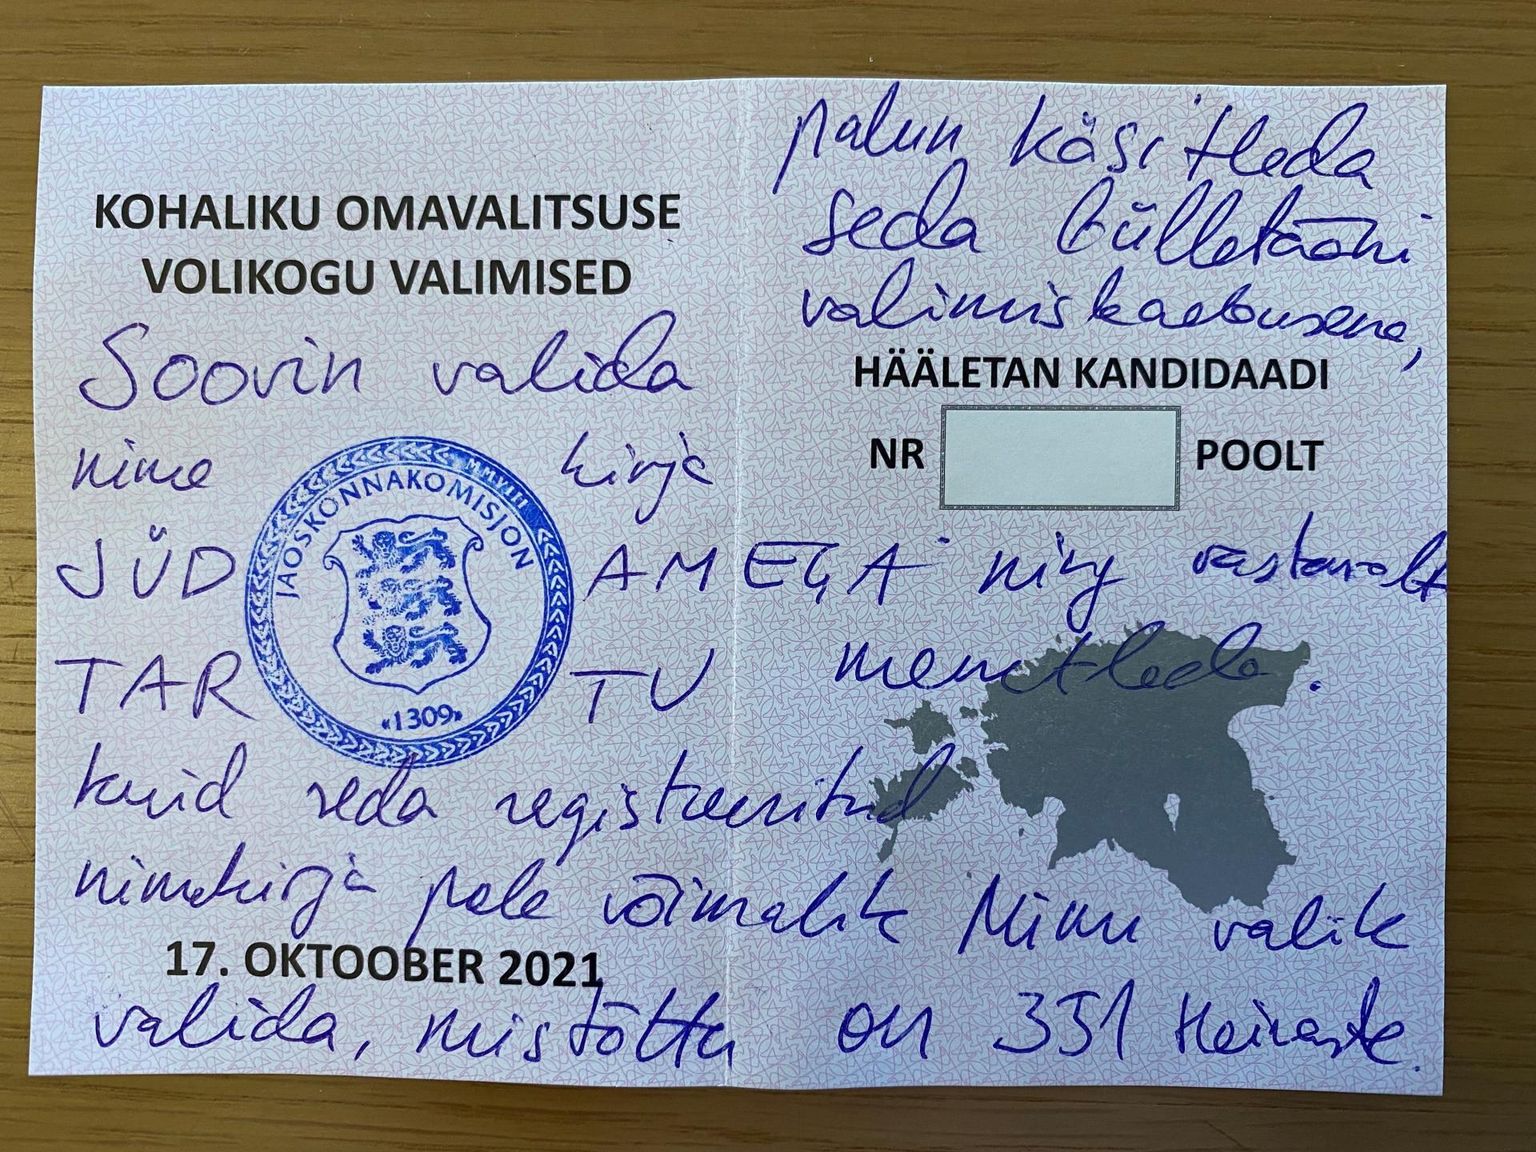 KOHALIKU OMAVALITSUSE
VOLIKOGU VALIMISED
Soovin valida
nime kirja
JÜD AMEGA
TAR TU
JAOSKONNAKOMISJON
MMVIII
«1309»
kuid seda registreeritud
nimekirja pole võimalik
17. OKTOOBER 2021
valida, mistõttu
palun käsitleda
seda bülletääni
valimiskaebusena,
HÄÄLETAN KANDIDAADI
NR POOLT
ning vastavalt
menetleda.
Minu valik
on 331 Heiraste.